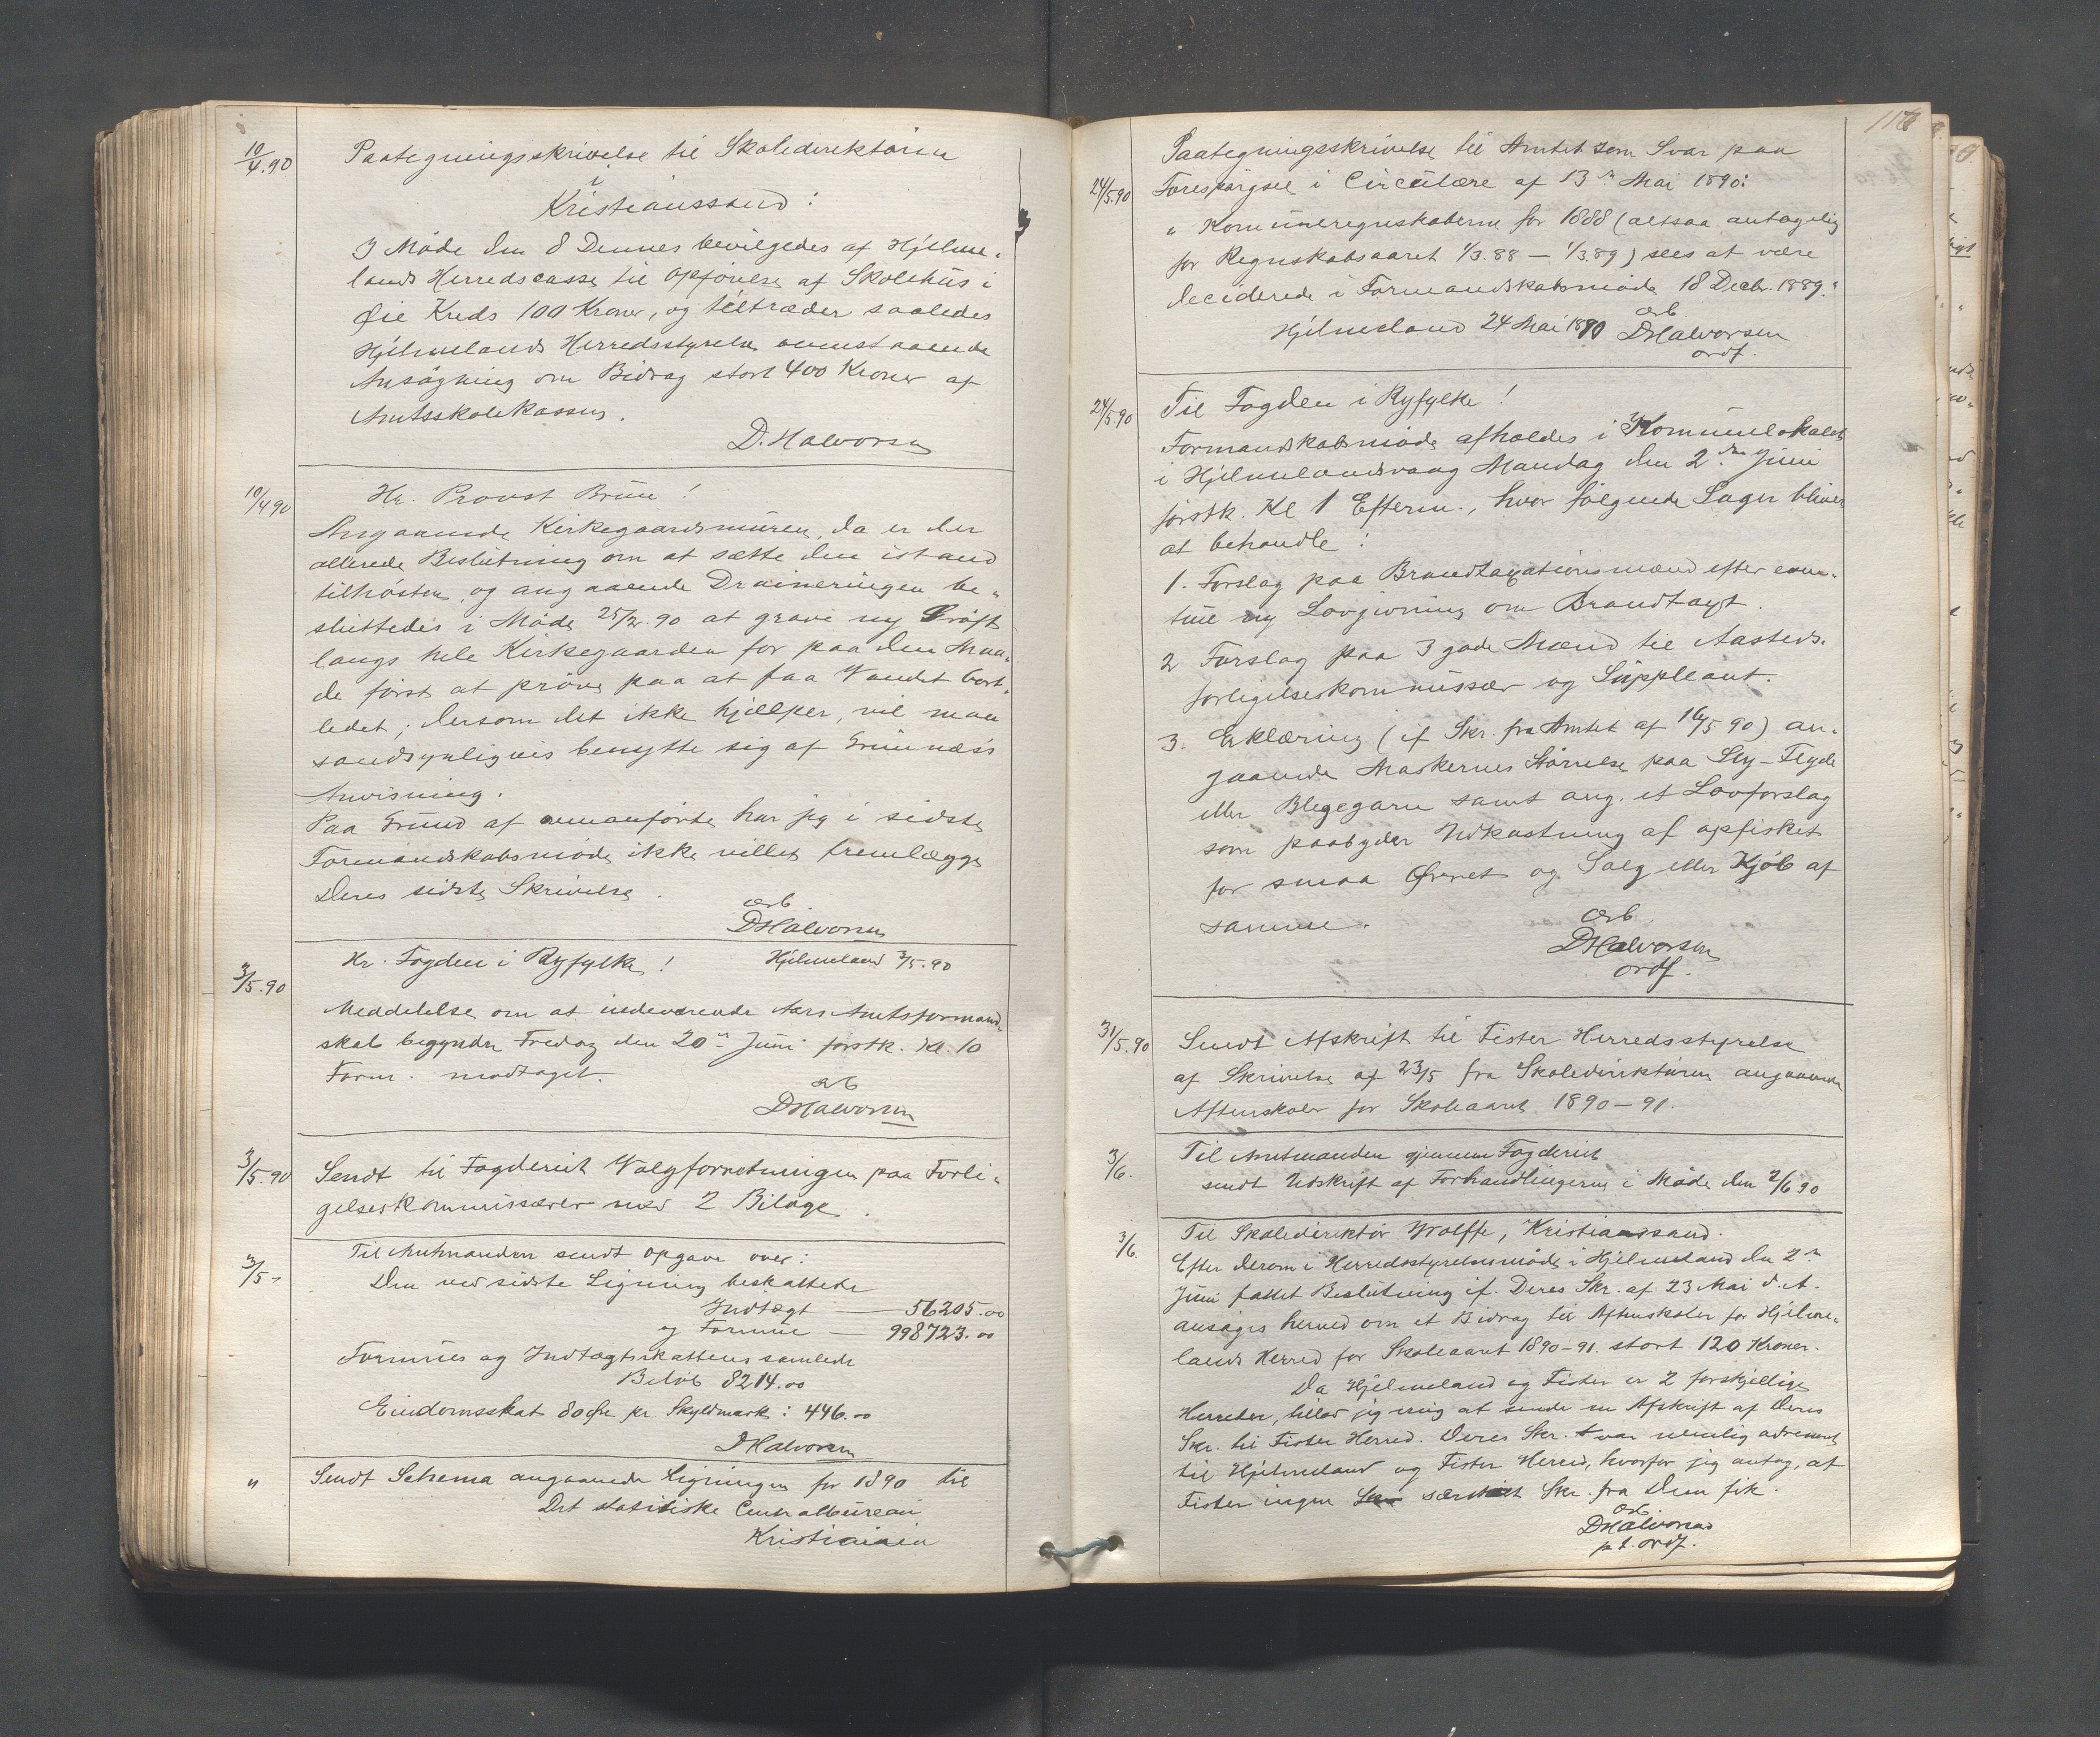 10/4.90 Paategningsskrivelse til Skoledirektøren
i
Kristianssand:
I Møde den 8 Dennes bevilgedes af Hjelme-
lands Herredscasse til Opførelse af Skolehus i
Øie Kreds 100 Kroner, og tiltræder saaledes
Hjelmelands Herredsstyrelse omenstaaende
Ansøgning om Bidrag stort 400 Kroner af
Amtsskolekassen.
D. Halvorsen
10/4 90 Hr. Provst Brun!
Angaaende Kirkegaardsmuren, da er der
allerede Beslutning om at sætte den istand
tilhøsten, og angaaende Draineringen be-
sluttedes i Møde 25/2.90 at grave ny Grøft
langs hele Kirkegaarden for paa den Maa-
de først at prøve paa at faa Vandet bort-
ledet; dersom det ikke hjælper, vil man
sandsynligvis benytte sig af
Anvisning.
Paa Grund af ovenanførte har jeg i sidste
Formandskabsmøde ikke villet fremlægge
Deres sidste Skrivelse.
Ærb.
DHalvorsen
3/5.90 Hr. Fogden i Ryfylke! Hjelmeland 3/5.90
Meddelelse om at indeværende Aars Amtsformand-
skab begynder Fredag den 20de Juni førstk. Kl. 10
Form. modtaget.
Ærb
DHalvorsen
3/5.90 Sendt til Fogderiet Valgforretningen paa Forli-
gelseskommissærer med 2 Bilage.
3/5- Til Amtmanden sendt Opgave over:
Den ved sidste Ligning beskattede
Indtægt — 56205.00
og Formue — 998723.00
Formues og Indtægtsskattens samlede
Beløb 8214.00
Eiendomsskat 80 Øre pr. Skyldmark: 446.00
DHalvorsen
" Sendt Schema angaaende Ligningen for 1890 til
Det statistiske Centralbureau
Kristiania
Paategningsskrivelse til Amtet som Svar paa
24/5.90 Forespørgsel i Circulære af 13de Mai 1890:
"Kommuneregnskaberne for 1888 (altsaa antagelig
for Regnskabsaaret 1/3.88 — 1/3.89) sees at være
deciderede i Formandskabsmøde 18 Decbr. 1889."
Ærb
Hjelmeland 24 Mai 1890 DHalvorsen
ordf.
24/5.90 Til Fogden i Ryfylke!
Formandskabsmøde afholdes i Kommunelokalet
i Hjelmelandsvaag Mandag den 2den Juni
førstk. Kl 1 Efterm., hvor følgende Sager bliver
at behandle:
1. Forslag paa Brandtaxationsmænd efter even-
tuel ny Lovgivning om Brandtaxt.
2 Forslag paa 3 gode Mænd til Aasteds-
forligelseskommissær og Suppleant.
3. Erklæring (if Skr. fra Amtet af 16/5 90) an-
gaaende Maskernes Størrelse paa
eller samt ang. et Lovforslag
som paabyder Udkastning af opfisket
for smaa Ørret og Salg eller Kjøb af
samme.
Ærb.
DHalvorsen
ordf.
31/5.90 Sendt Afskrift til Fister Herredsstyrelse
af Skrivelse af 23/5 fra Skoledirektøren angaaende
Aftenskoler for Skoleaaret 1890–91.
3/6. Til Amtmanden gjennem Fogderiet
sendt Udskrift af Forhandlingerne i Møde den 2/6 90
3/6. Til Skoledirektør Wolffe, Kristianssand.
Efter derom i Herredsstyrelsesmøde i Hjelmeland den 2de
Juni fattet Beslutning if. Deres Skr. af 23 Mai d. A.
ansøges herved om et Bidrag til Aftenskoler for Hjelme-
lands Herred for Skoleaaret 1890–91. stort 120 Kroner.
Da Hjelmeland og Fister er 2 forskjellige
Herreder, tillod jeg mig at sende en Afskrift af Deres
Skr. til Fister Herred. Deres Skr. var nemlig adresseret
til Hjelmeland og Fister Herred, hvorfor jeg antog, at
Fister ingen særskilt Skr. fra Dem fik.
Ærb.
DHalvorsen
p t. ordf.